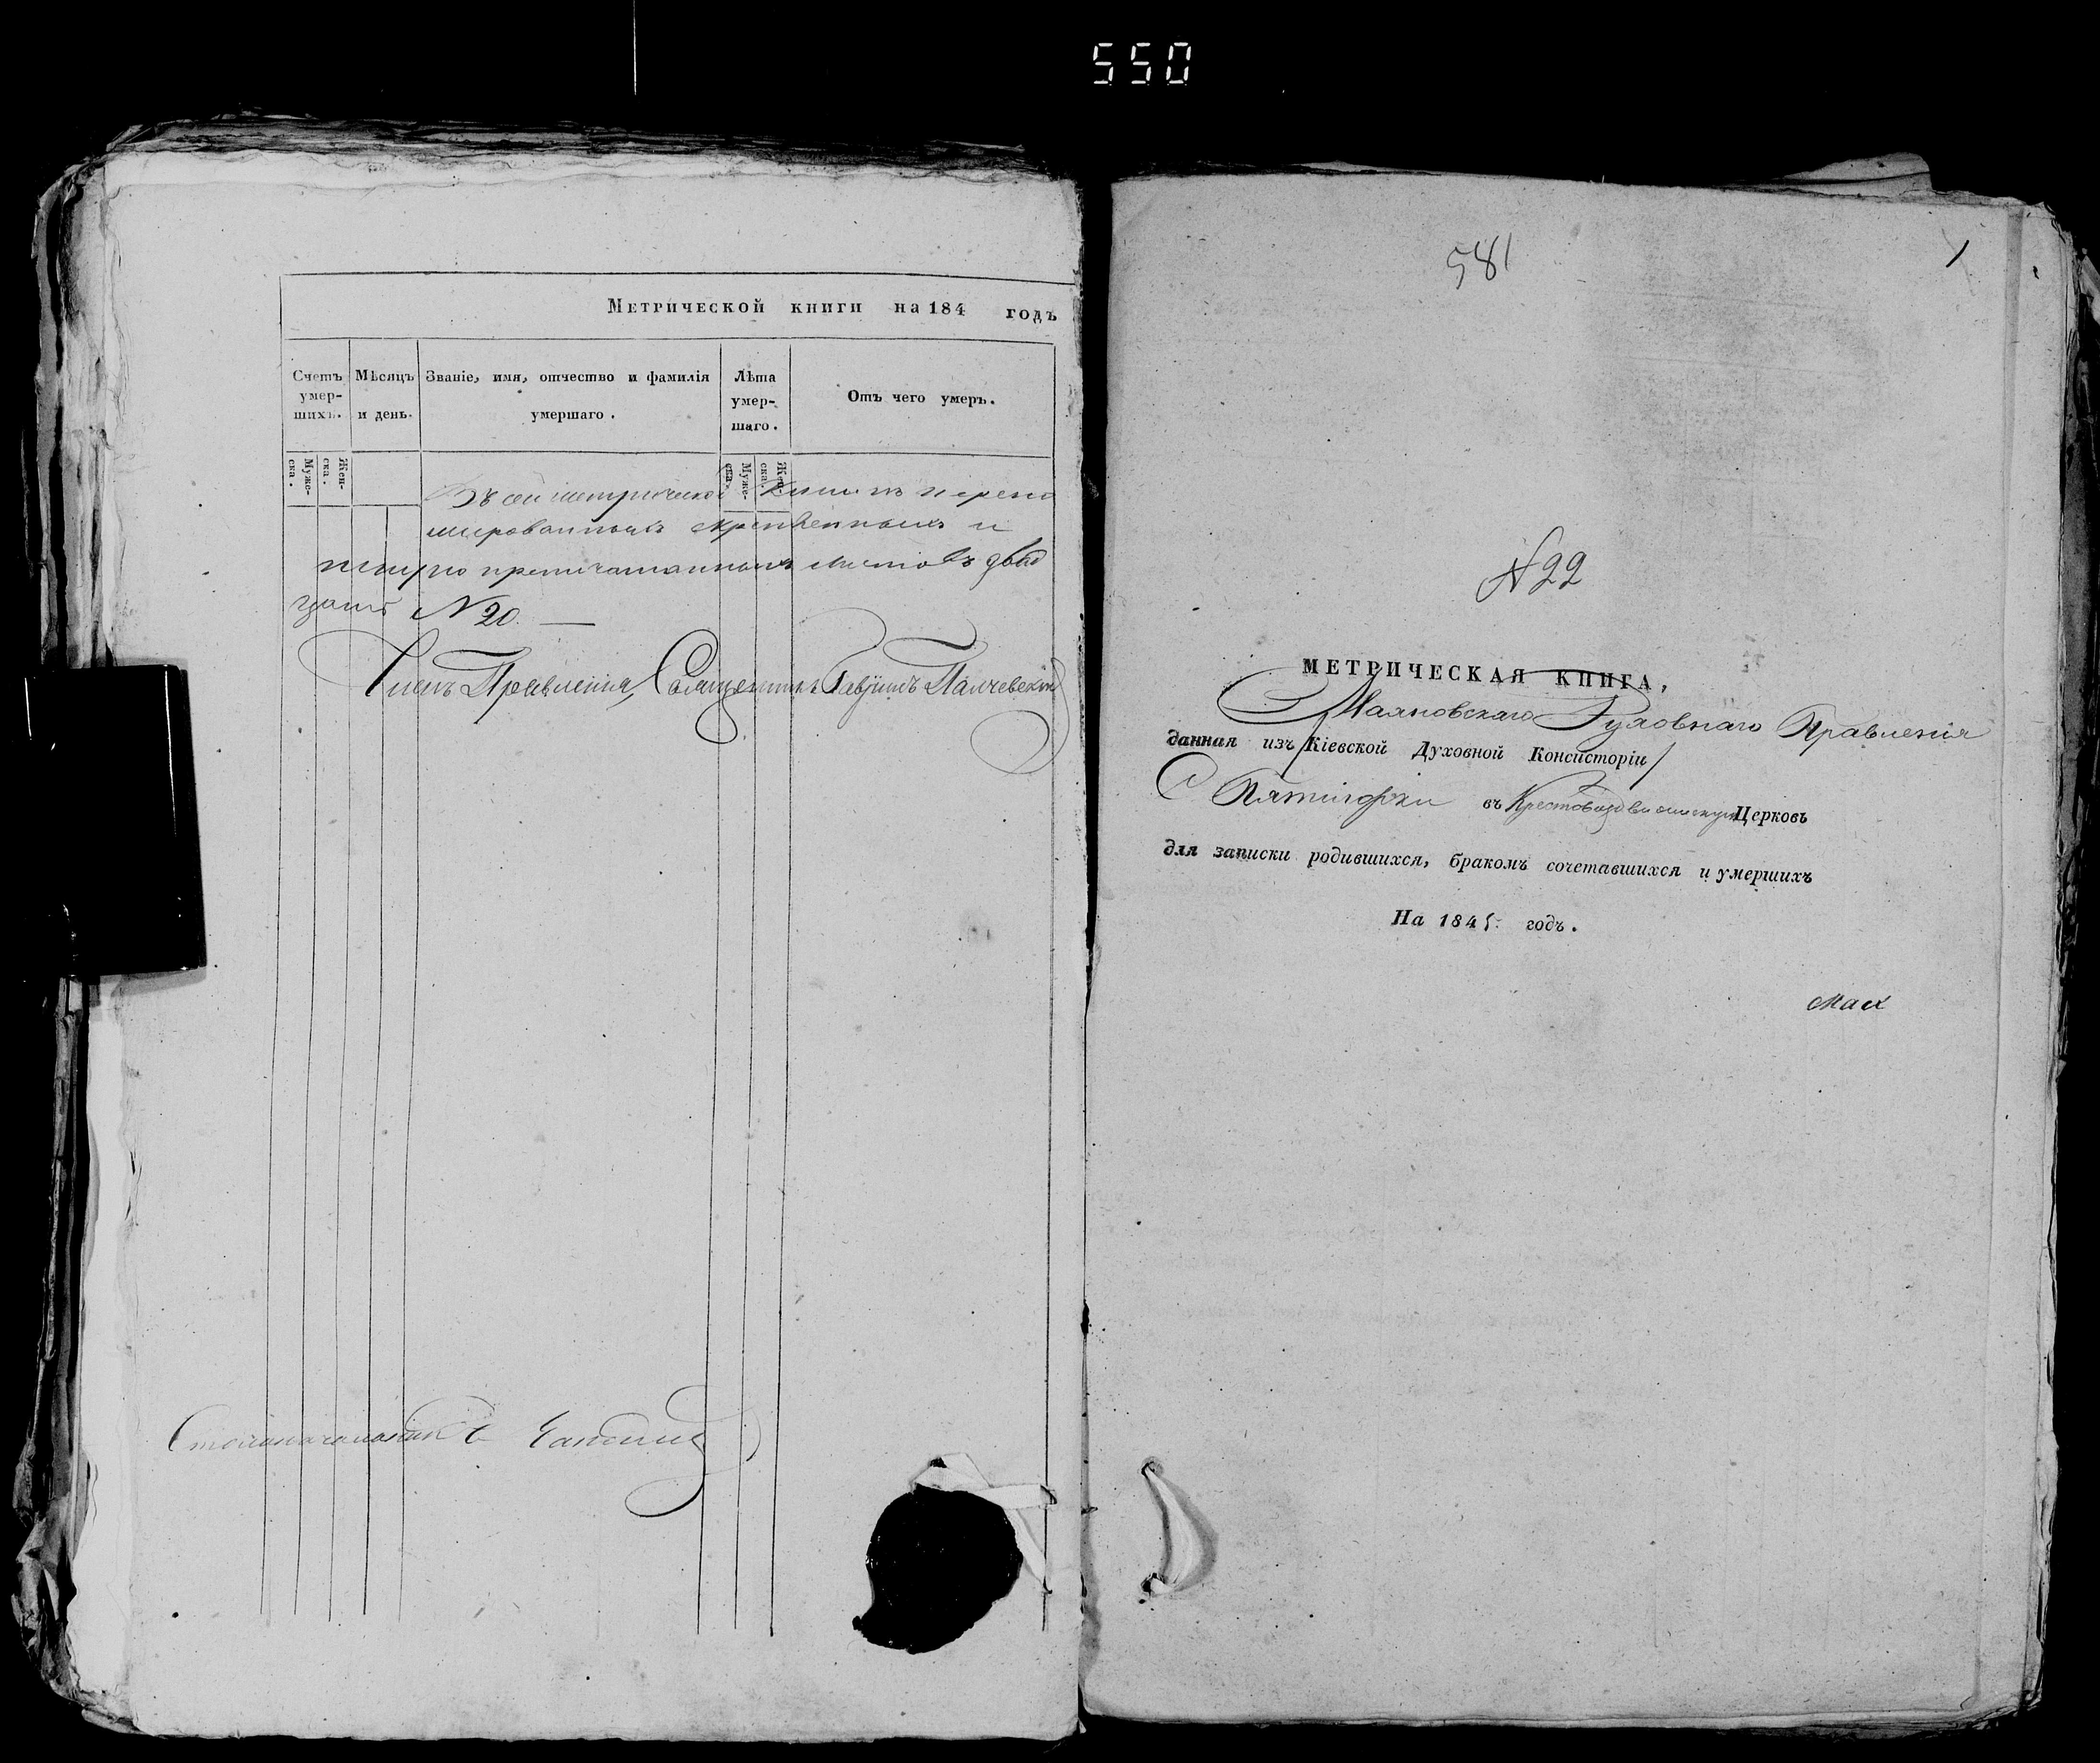 550
Метрической книги на 184 годъ
Счетъ умер-шихъ. Мѣсяцъ и день. Званіе, имя, отчество и фамилія умершаго. Лѣта умер-шаго. Отъ чего умеръ.
Муже-ска. Жен-ска. Муже-ска. Жен-ска.
Въ сей метрической книги перену
мерованныхъ скрепленныхъ и
листовъ двад
цать N 20. —
Членъ Правленія, Священникъ
Столоначальникъ
581
1
N 22
МЕТРИЧЕСКАЯ КНИГА,
Духовнаго Правленія
данная изъ Кіевской Духовной Консисторіи
С Пятигорки въ Крестовоздвиженскую Церковь
для записки родившихся, бракомъ сочетавшихся и умершихъ
На 1845 годъ.